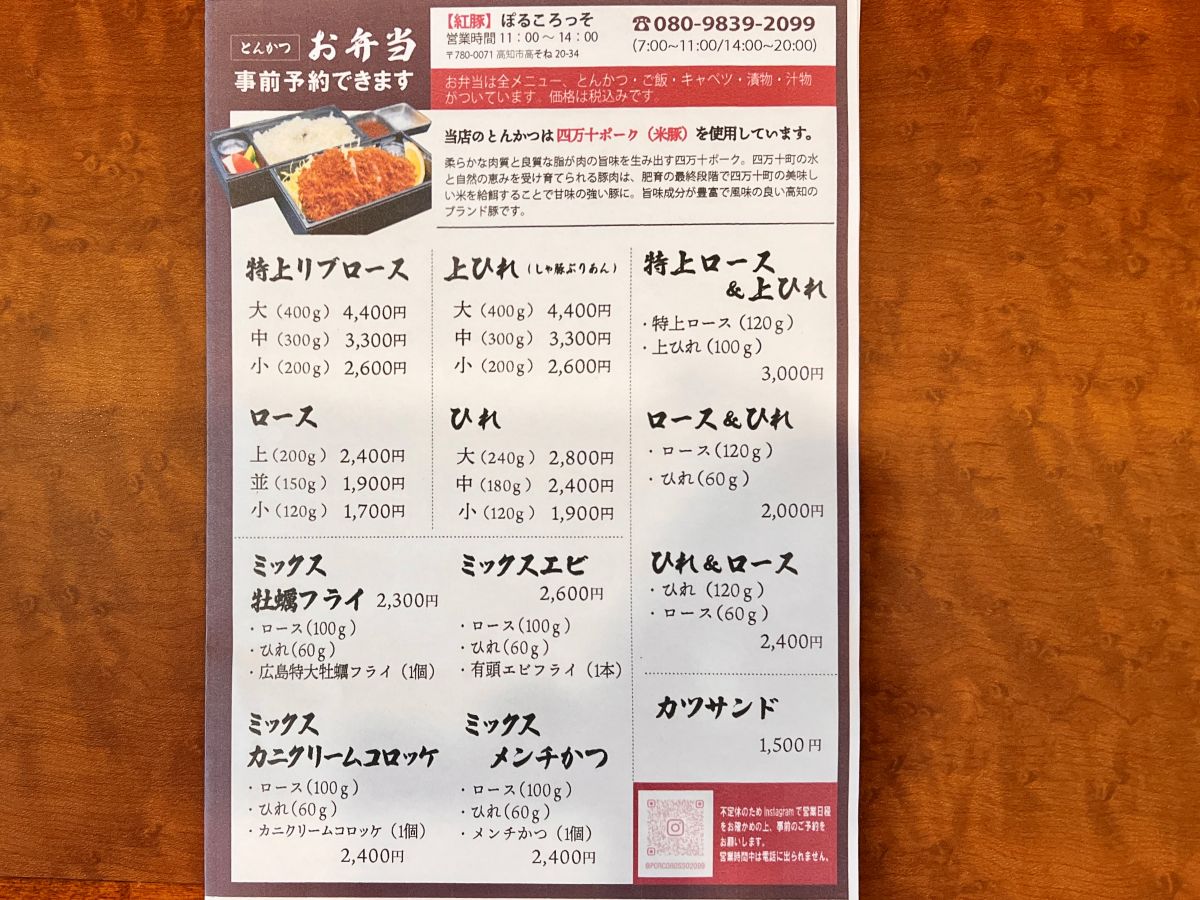 とんかつ お弁当
事前予約できます
【紅豚】ぽるころっそ
営業時間 11：00 〜 14：00
〒780-0071 高知市高そね 20-34
☎080-9839-2099
(7:00~11:00/14:00~20:00)
お弁当は全メニュー、とんかつ・ご飯・キャベツ・漬物・汁物
がついています。価格は税込みです。
当店のとんかつは 四万十ポーク（米豚）を使用しています。
柔らかな肉質と良質な脂が肉の旨味を生み出す四万十ポーク。四万十町の水
と自然の恵みを受け育てられる豚肉は、肥育の最終段階で四万十町の美味し
い米を給餌することで甘味の強い豚に。旨味成分が豊富で風味の良い高知の
ブランド豚です。
特上リブロース
大（400g）4,400円
中（300g）3,300円
小（200g）2,600円
上ひれ（しゃ豚ぶりあん）
大（400g）4,400円
中（300g）3,300円
小（200g）2,600円
特上ロース
＆上ひれ
・特上ロース（120g）
・上ひれ（100g）
3,000円
ロース
上（200g）2,400円
並（150g）1,900円
小（120g）1,700円
ひれ
大（240g）2,800円
中（180g）2,400円
小（120g）1,900円
ロース＆ひれ
・ロース（120g）
・ひれ（60g）
2,000円
ひれ＆ロース
・ひれ（120g）
・ロース（60g）
2,400円
ミックス
牡蠣フライ 2,300円
・ロース（100g）
・ひれ（60g）
・広島特大牡蠣フライ（1個）
ミックスエビ
2,600円
・ロース（100g）
・ひれ（60g）
・有頭エビフライ（1本）
カツサンド
1,500円
ミックス
カニクリームコロッケ
・ロース（100g）
・ひれ（60g）
・カニクリームコロッケ（1個）
2,400円
ミックス
メンチかつ
・ロース（100g）
・ひれ（60g）
・メンチかつ（1個）
2,400円
@PORCOROSSO2099
不定休のため Instagram で営業日程
をお確かめの上、事前のご予約を
お願いします。
営業時間中は電話に出られません。